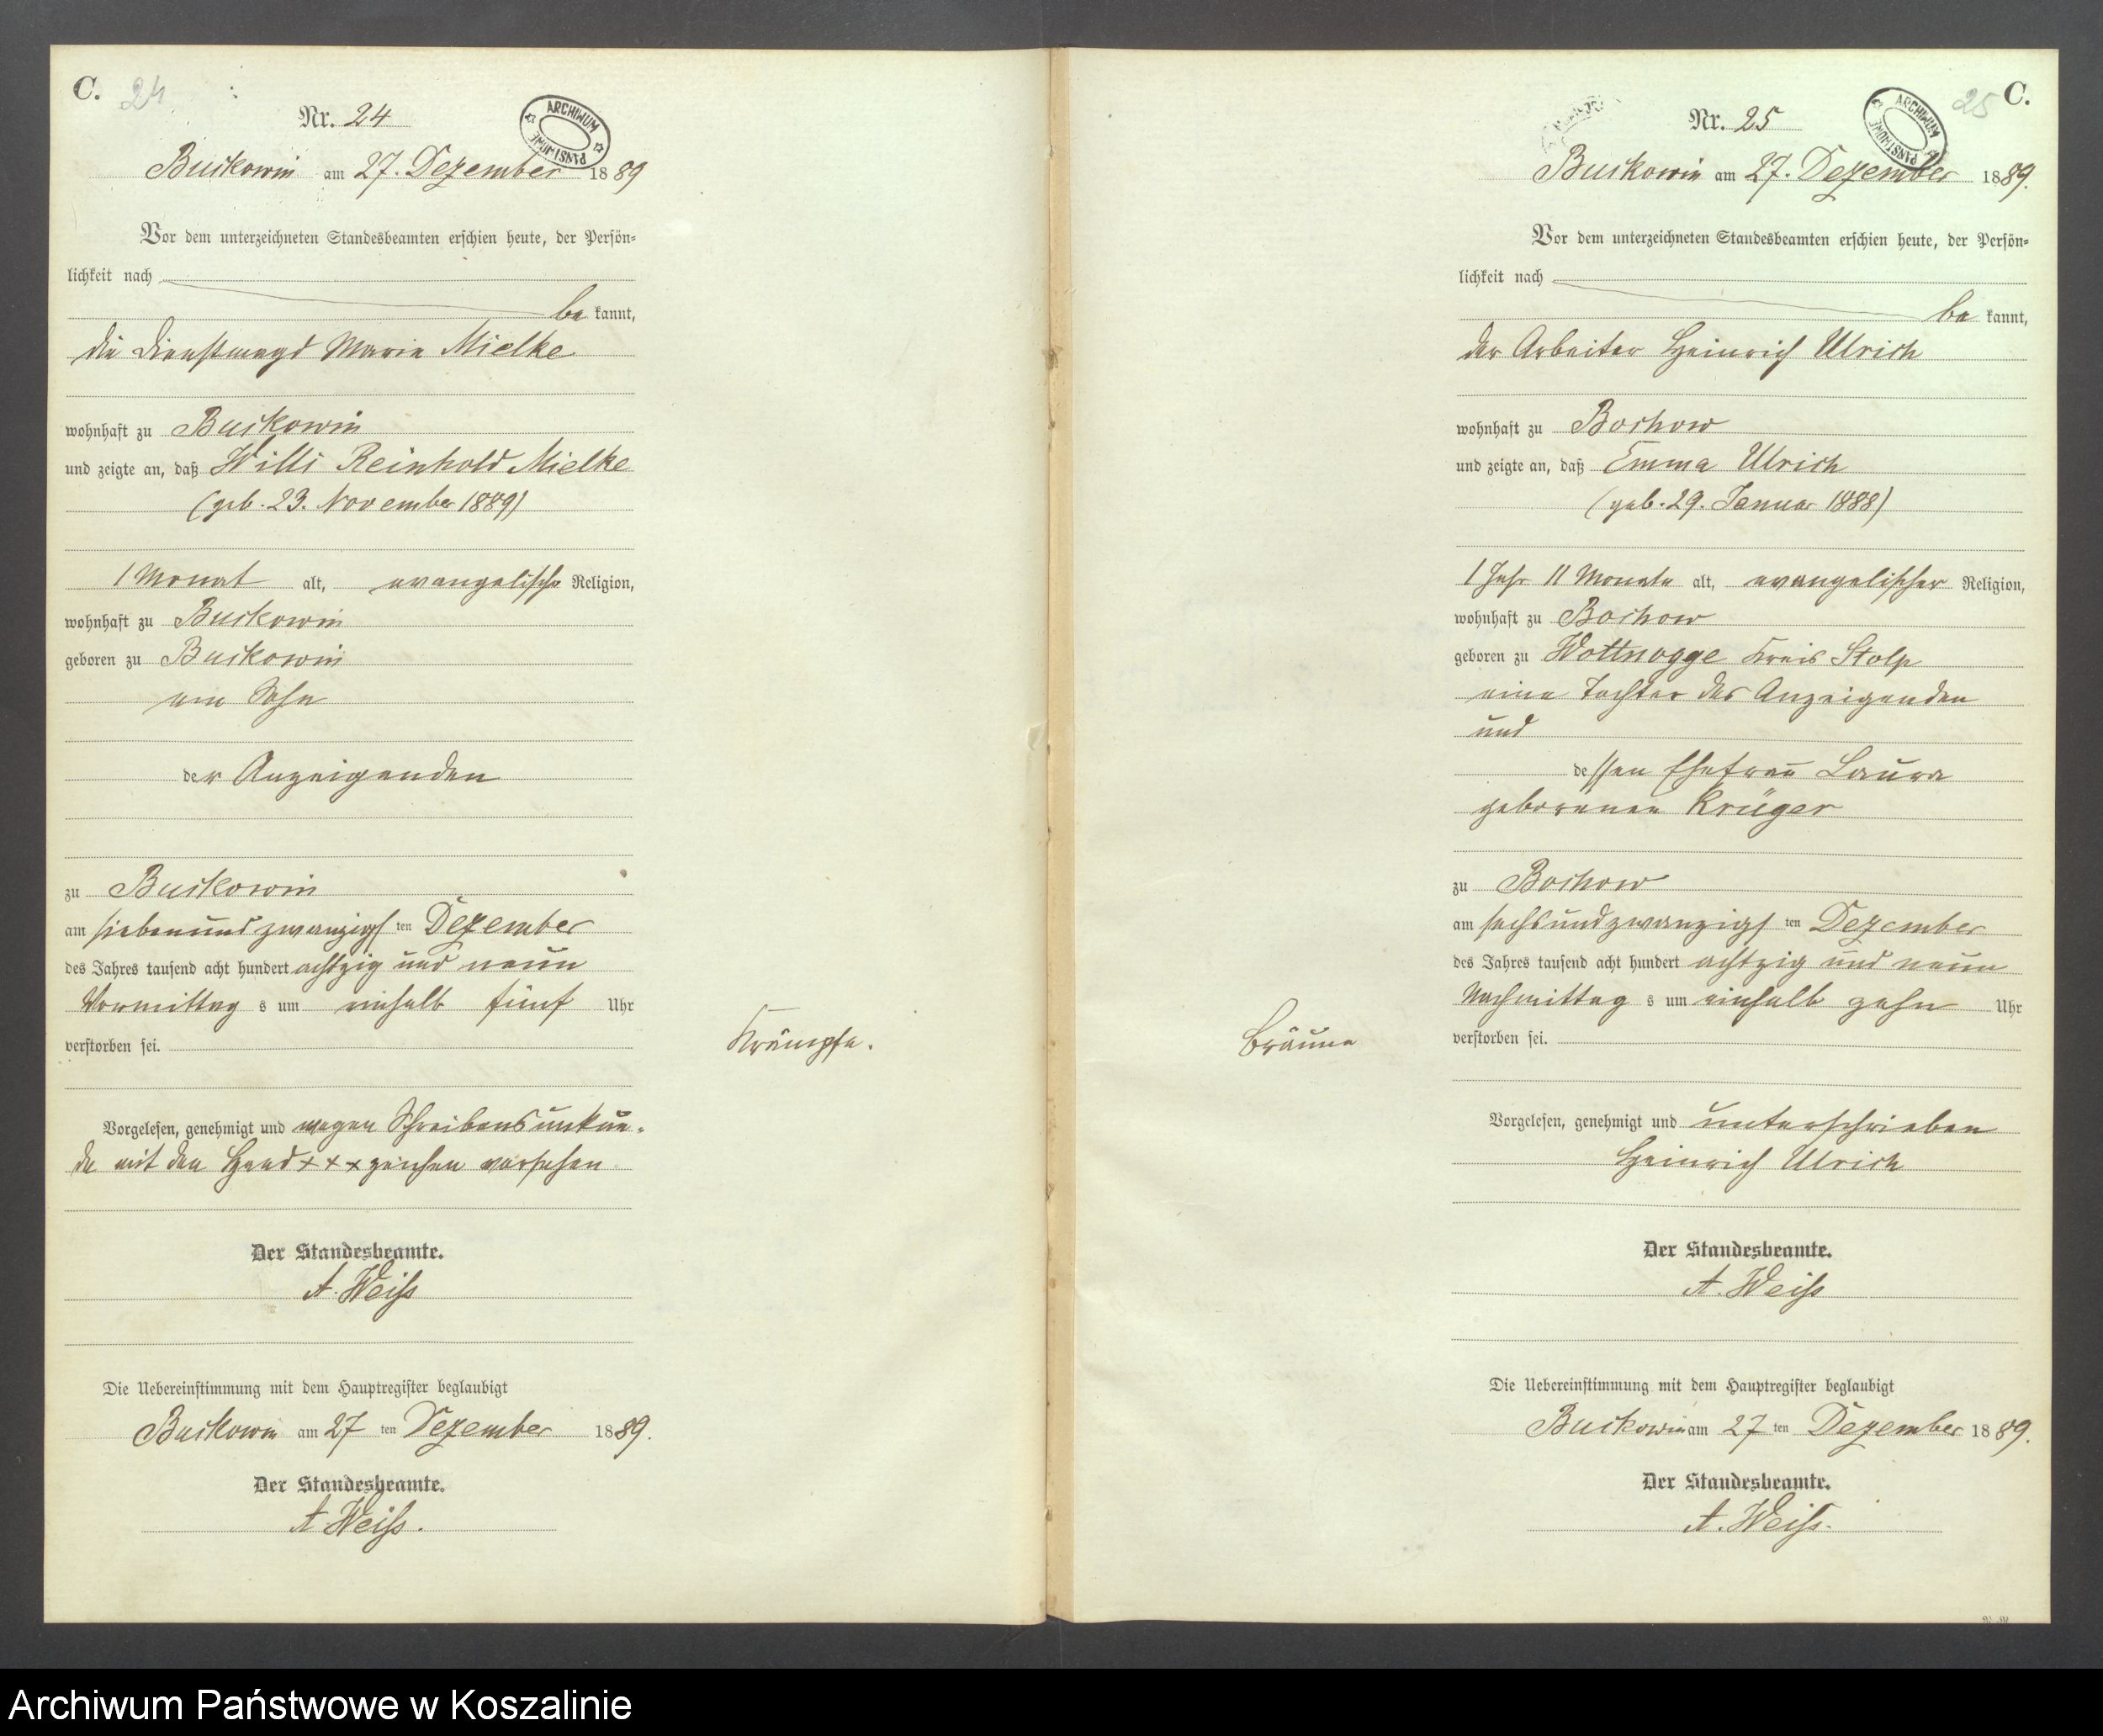 C. 24
Nr. 24
ARCHIWUM PAŃSTWOWE
Buckowin am 27. Dezember 1889
Vor dem unterzeichneten Standesbeamten erschien heute, der Persön-
lichkeit nach
be kannt,
die Dienstmagd Marie Mielke
wohnhaft zu Buckowin
und zeigte an, daß Willi Reinhold Mielke
(geb. 23. November 1889)
1 Monat alt, evangelischer Religion,
wohnhaft zu Buckowin
geboren zu Buckowin
ein Sohn
der Anzeigenden
zu Buckowin
am siebenundzwanzigsten Dezember
des Jahres tausend acht hundert achtzig und neun
Vormittag s um einhalb fünf Uhr
verstorben sei.
Krämpfe.
Vorgelesen, genehmigt und wegen Schreibensunkun-
de mit den Hand+++zeichen versehen
Der Standesbeamte.
A. Weiss
Die Uebereinstimmung mit dem Hauptregister beglaubigt
Buckowin am 27 ten Dezember 1889.
Der Standesbeamte.
A. Weiss.
25 C.
Nr. 25
ARCHIWUM PAŃSTWOWE
Buckowin am 27. Dezember 1889.
Vor dem unterzeichneten Standesbeamten erschien heute, der Persön-
lichkeit nach
be kannt,
der Arbeiter Heinrich Ulrich
wohnhaft zu Bochow
und zeigte an, daß Emma Ulrich
(geb. 29. Januar 1888)
1 Jahr 11 Monate alt, evangelischer Religion,
wohnhaft zu Bochow
geboren zu Wottnogge Kreis Stolp
eine Tochter des Anzeigenden
und
dessen Ehefrau Laura
geborenen Krüger
zu Bochow
am sechsundzwanzigsten Dezember
des Jahres tausend acht hundert achtzig und neun
Nachmittag s um einhalb zehn Uhr
verstorben sei.
Bräune
Vorgelesen, genehmigt und unterschrieben
Heinrich Ulrich
Der Standesbeamte.
A. Weiss
Die Uebereinstimmung mit dem Hauptregister beglaubigt
Buckowin am 27 ten Dezember 1889.
Der Standesbeamte.
A. Weiss.
Archiwum Państwowe w Koszalinie